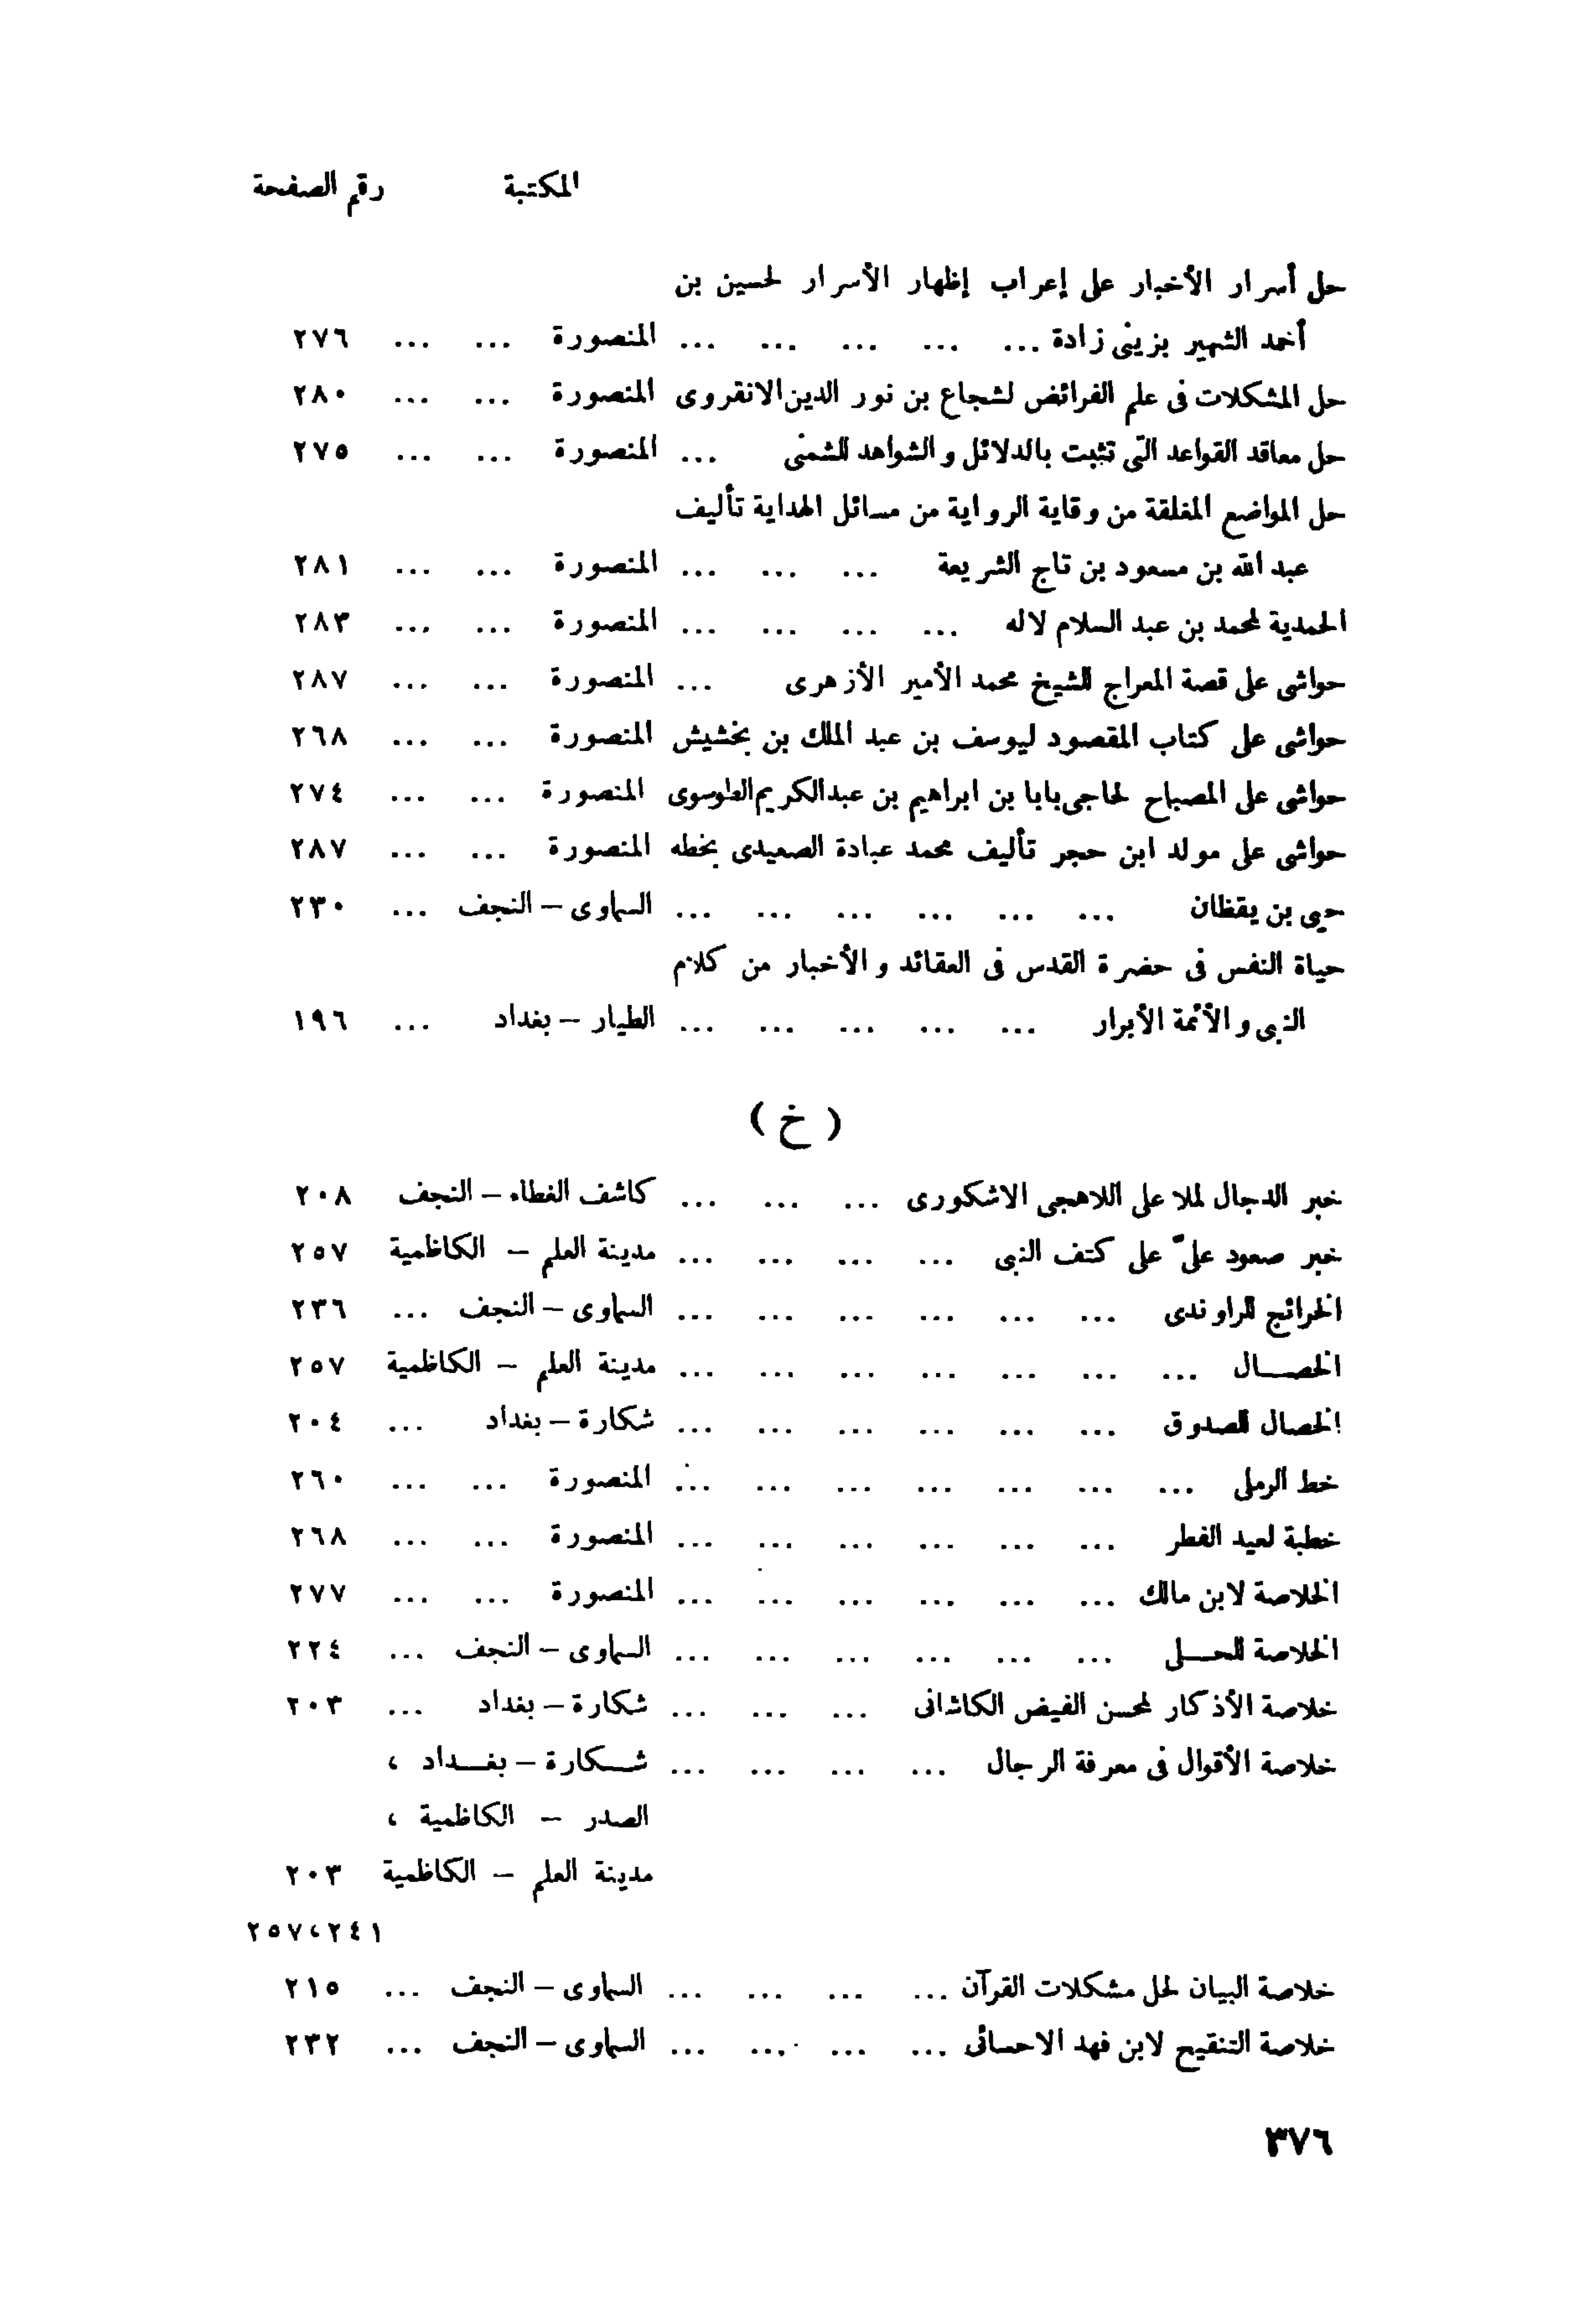 المكتبة رقم الصفحة
حل أسرار الأخبار على إعراب إظهار الأسرار لحسين بن
أحمد الشهير بزينى زادة ... ... ... ... ... المنصورة ... ... ٢٧٦
حل المشكلات فى علم الفرائض لشجاع بن نور الدين الانقروى المنصورة ... ... ٢٨٠
حل معاقد القواعد التى تثبت بالدلائل والشواهد للشمنى ... المنصورة ... ... ٢٧٥
حل المواضع المغلقة من وقاية الرواية من مسائل الهداية تأليف
عبد الله بن مسعود بن تاج الشريعة ... ... ... المنصورة ... ... ٢٨١
الحمدية لمحمد بن عبد السلام لاله ... ... ... ... المنصورة ... ... ٢٨٣
حواشى على قصة المعراج للشيخ محمد الأمير الأزهرى ... المنصورة ... ... ٢٨٧
حواشى على كتاب المقصود ليوسف بن عبد الملك بن بخشيش المنصورة ... ... ٢٦٨
حواشى على المصباح لحاجى بابا بن ابراهيم بن عبدالكريم الطوسوى المنصورة ... ... ٢٧٤
حواشى على مولد ابن حجر تأليف محمد عبادة الصعيدى بخطه المنصورة ... ... ٢٨٧
حيى بن يقظان ... ... ... ... ... ... السماوى – النجف ... ٢٣٠
حياة النفس فى حضرة القدس فى العقائد والأخبار من كلام
النبى والأئمة الأبرار ... ... ... ... ... الطيار – بغداد ... ١٩٦
( خ )
خبر الدجال لملا على اللاهجى الاشكورى ... ... ... كاشف الغطاء – النجف ٢٠٨
خبر صعود علىّ على كتف النبى ... ... ... ... مدينة العلم – الكاظمية ٢٥٧
الخرائج للراوندى ... ... ... ... ... ... السماوى – النجف ... ٢٣٦
الخصـــال ... ... ... ... ... ... ... مدينة العلم – الكاظمية ٢٥٧
الخصال للصدوق ... ... ... ... ... ... شكارة – بغداد ... ٢٠٤
خط الرملى ... ... ... ... ... ... ... المنصورة ... ... ٢٦٠
خطبة لعيد الفطر ... ... ... ... ... ... المنصورة ... ... ٢٦٨
الخلاصة لابن مالك ... ... ... ... ... ... المنصورة ... ... ٢٧٧
الخلاصة للحـــلى ... ... ... ... ... ... السماوى – النجف ... ٢٢٤
خلاصة الأذكار لمحسن الفيض الكاشانى ... ... ... شكارة – بغداد ... ٢٠٣
خلاصة الأقوال فى معرفة الرجال ... ... ... ... شـــكارة – بغـــداد ،
الصدر – الكاظمية ،
مدينة العلم – الكاظمية ٢٠٣
٢٤١،٢٥٧
خلاصة البيان لحل مشكلات القرآن ... ... ... ... السماوى – النجف ... ٢١٥
خلاصة التنقيح لابن فهد الاحسائى ... ... ... ... السماوى – النجف ... ٢٣٢
٣٧٦